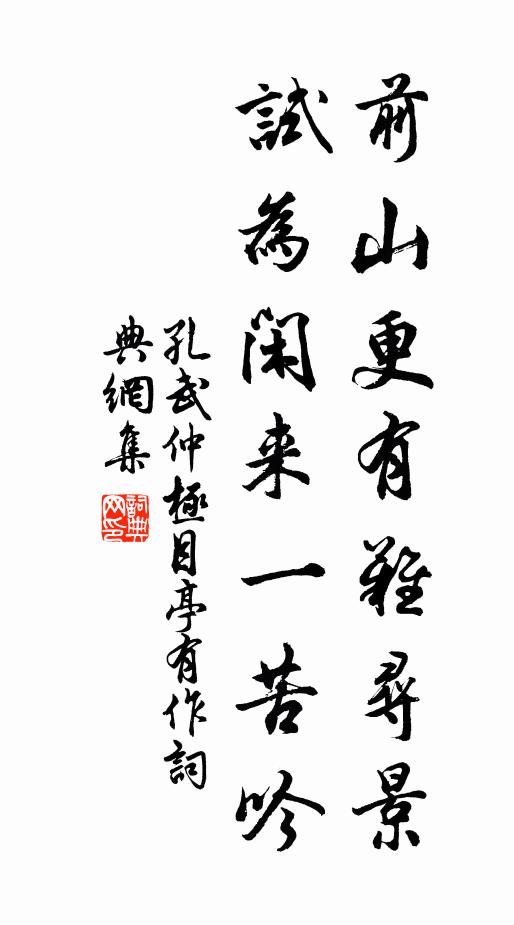 前山更有難尋景
試為閑来一苦吟
孔武仲極目亭有作詞
典網集
詞典網印